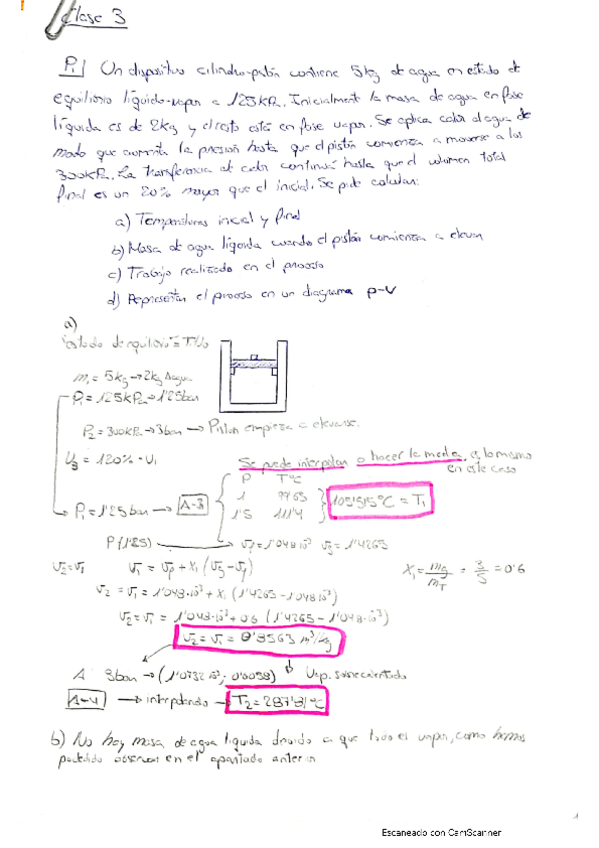 Clase 3
P1 Un dispositivo cilindro-pistón contiene 5kg de agua en estado de
equilibrio líquido-vapor a 125kPa. Inicialmente la masa de agua en fase
líquida es de 2kg y el resto está en fase vapor. Se aplica calor al agua de
modo que aumenta la presión hasta que el pistón comienza a moverse a los
300kPa. La transferencia de calor continúa hasta que el volumen total
final es un 20% mayor que el inicial. Se pide calcular:
a) Temperaturas inicial y final
b) Masa de agua líquida cuando el pistón comienza a elevar
c) Trabajo realizado en el proceso
d) Representar el proceso en un diagrama p-V
a)
"estado de equilibrio"
m1 = 5kg → 2kg
P1 = 125kPa → 1'25bar
P2 = 300kPa → 3bar → Piston empieza a elevarse.
V3 = 120% · V1
Se puede interpolar o hacer la media, es lo mismo
en este caso
P T°C
1 99'63
1'5 111'4
105'515°C = T1
P1 = 1'25bar → A-3
P(1'25) → vf = 1'048·10⁻³ vg = 1'4265
v2=v1 v1 = vf + x1 (vg - vf) x1 = mg/mT = 3/5 = 0'6
v2 = v1 = 1'048·10⁻³ + x1 (1'4265 - 1'048·10⁻³)
v2 = v1 = 1'048·10⁻³ + 0'6 (1'4265 - 1'048·10⁻³)
v2 = v1 = 0'8563 m³/kg
A 3bar → (1'0732·10⁻³; 0'6058) Vap. sobrecalentado
A-4 → interpolando → T2 = 287'81 °C
b) No hay masa de agua líquida debido a que todo es vapor, como hemos
podido observar en el apartado anterior
1
Escaneado con CamScanner